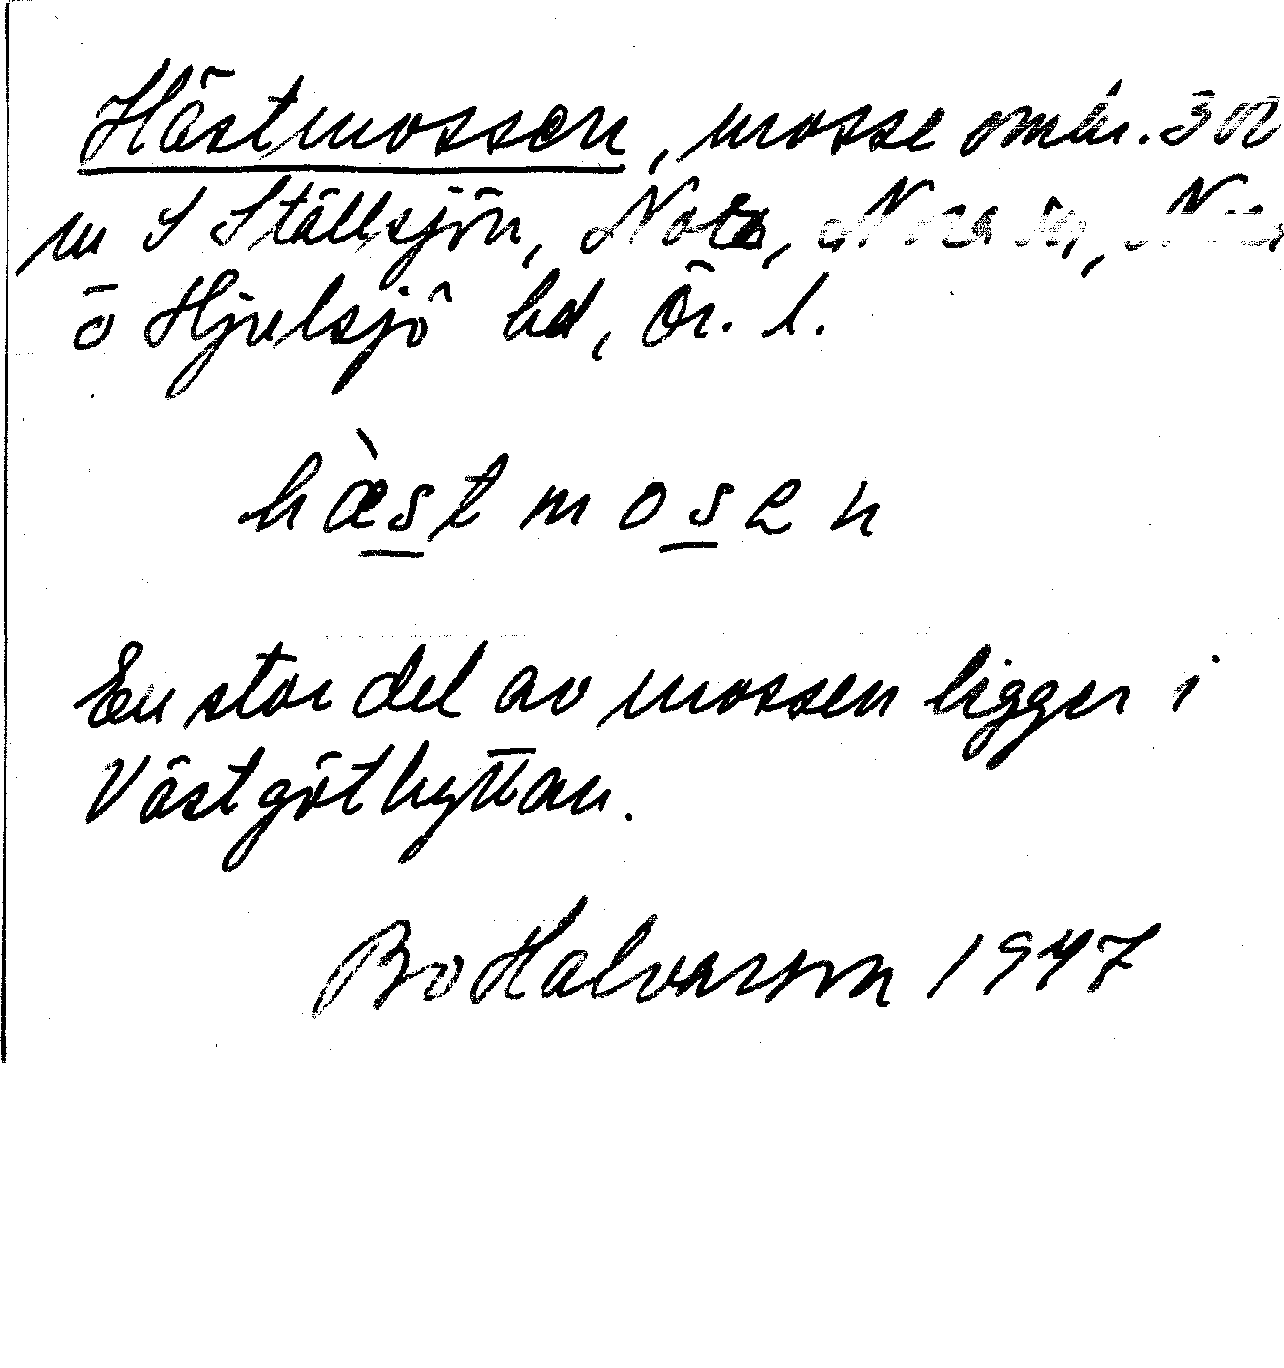 Hästmossen, mosse omkr. 300
m S Ställsjön, Nora, Nora sn, Nora
o Hjulsjö bd, Ör. l.
hæ̀stmosen
En stor del av mossen ligger i
Västgöthyttan.
Bo Halvarson 1947